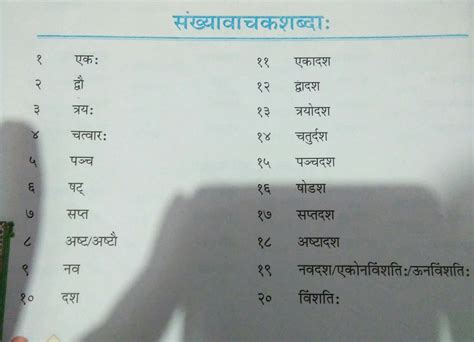 संख्यावाचकशब्दाः
१ एकः
२ द्वौ
३ त्रयः
४ चत्वारः
५ पञ्च
६ षट्
७ सप्त
८ अष्ट/अष्टौ
९ नव
१० दश
११ एकादश
१२ द्वादश
१३ त्रयोदश
१४ चतुर्दश
१५ पञ्चदश
१६ षोडश
१७ सप्तदश
१८ अष्टादश
१९ नवदश/एकोनविंशतिः/ऊनविंशतिः
२० विंशतिः